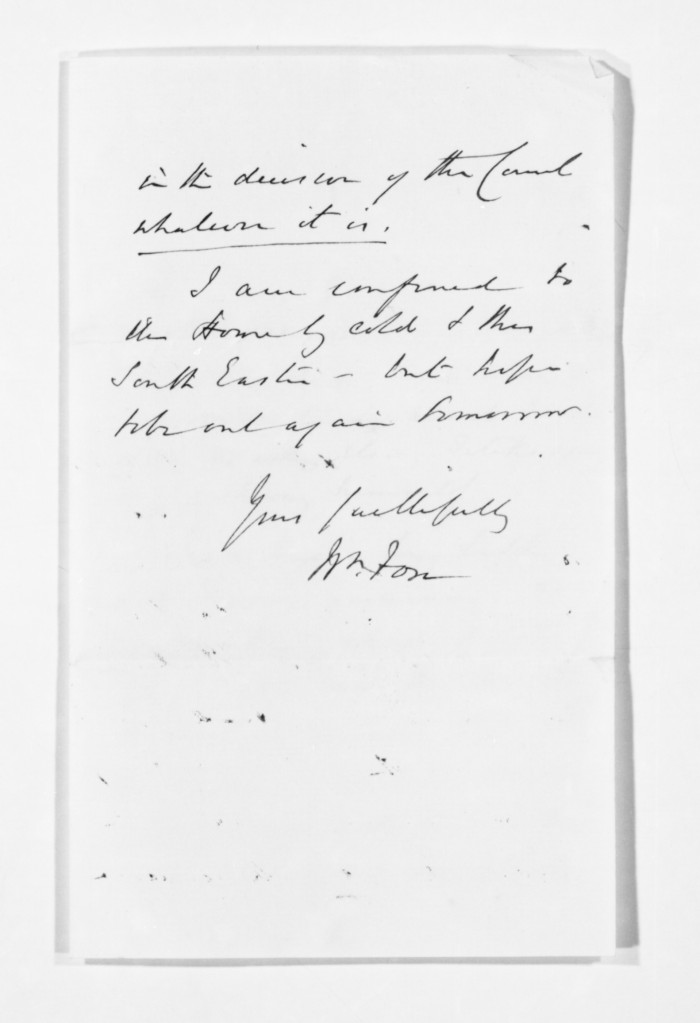 in the decision of the Council
whatever it is.
I am confined to
the House by cold & this
South Easter – but hope
to be out again tomorrow.
Yours faithfully
Wm. Fox